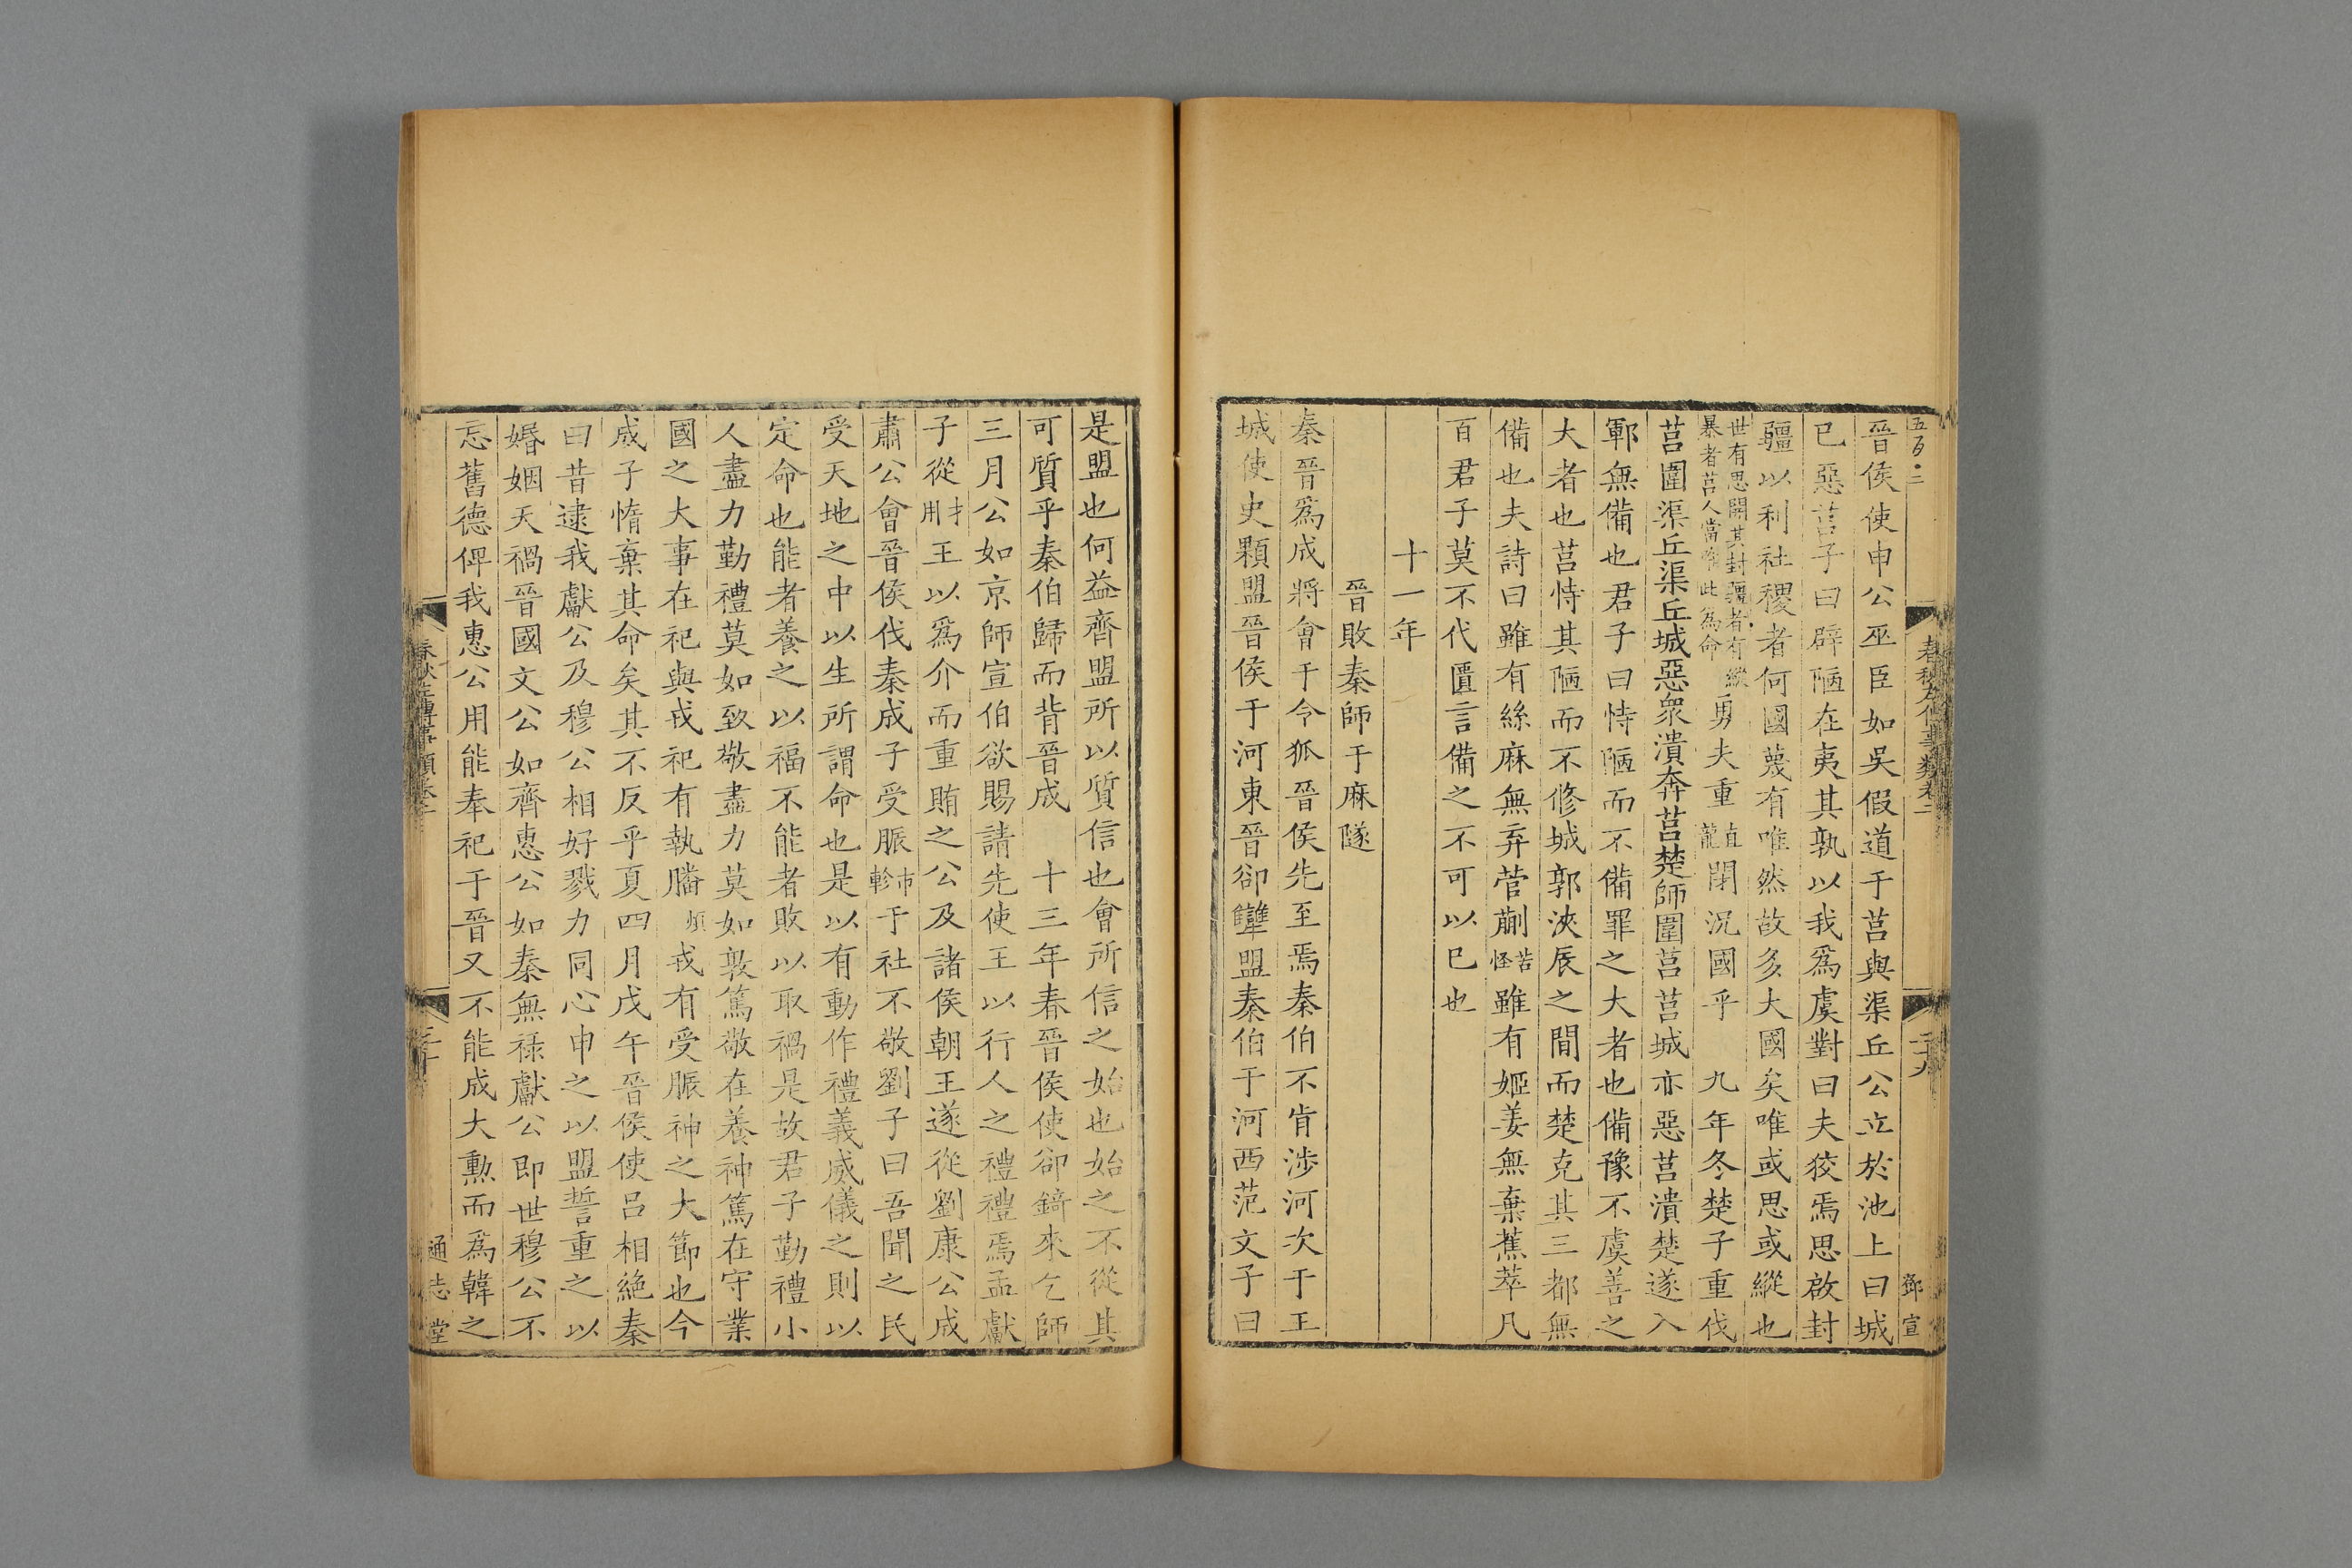 五百二
春秋左傳事類卷二
二十九
鄧宣
晉侯使申公巫臣如吳假道于莒與渠丘公立於池上曰城
已惡莒子曰辟陋在夷其孰以我爲虞對曰夫狡焉思啟封
疆以利社稷者何國蔑有唯然故多大國矣唯或思或縱也
世有思開其封疆者有縱
暴者莒人當唯此為命
勇夫重
直
龍
閉況國乎　九年冬楚子重伐
莒圍渠丘渠丘城惡衆潰奔莒楚師圍莒莒城亦惡莒潰楚遂入
鄆無備也君子曰恃陋而不備罪之大者也備豫不虞善之
大者也莒恃其陋而不修城郭浹辰之間而楚克其三都無
備也夫詩曰雖有絲麻無弃菅蒯
苦
怪
雖有姬姜無棄蕉萃凡
百君子莫不代匱言備之不可以已也
十一年
晉敗秦師于麻隧
秦晉爲成將會于令狐晉侯先至焉秦伯不肯涉河次于王
城使史顆盟晉侯于河東晉卻犫盟秦伯于河西范文子曰
是盟也何益齊盟所以質信也會所信之始也始之不從其
可質乎秦伯歸而背晉成　十三年春晉侯使卻錡來乞師
三月公如京師宣伯欲賜請先使王以行人之禮禮焉孟獻
子從
才
用
王以爲介而重賄之公及諸侯朝王遂從劉康公成
肅公會晉侯伐秦成子受脤
市
軫
于社不敬劉子曰吾聞之民
受天地之中以生所謂命也是以有動作禮義威儀之則以
定命也能者養之以福不能者敗以取禍是故君子勤禮小
人盡力勤禮莫如致敬盡力莫如敦篤敬在養神篤在守業
國之大事在祀與戎祀有執膰
煩
戎有受脤神之大節也今
成子惰棄其命矣其不反乎夏四月戊午晉侯使呂相絶秦
曰昔逮我獻公及穆公相好戮力同心申之以盟誓重之以
婚姻天禍晉國文公如齊惠公如秦無祿獻公即世穆公不
忘舊德俾我惠公用能奉祀于晉又不能成大勲而爲韓之
春秋左傳事類卷二
三十
通志堂